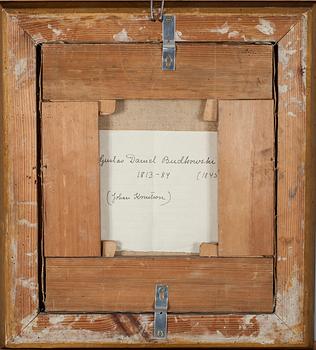 Gustav Daniel Budkowski
1813-84 (1845
(Johan Knutson)